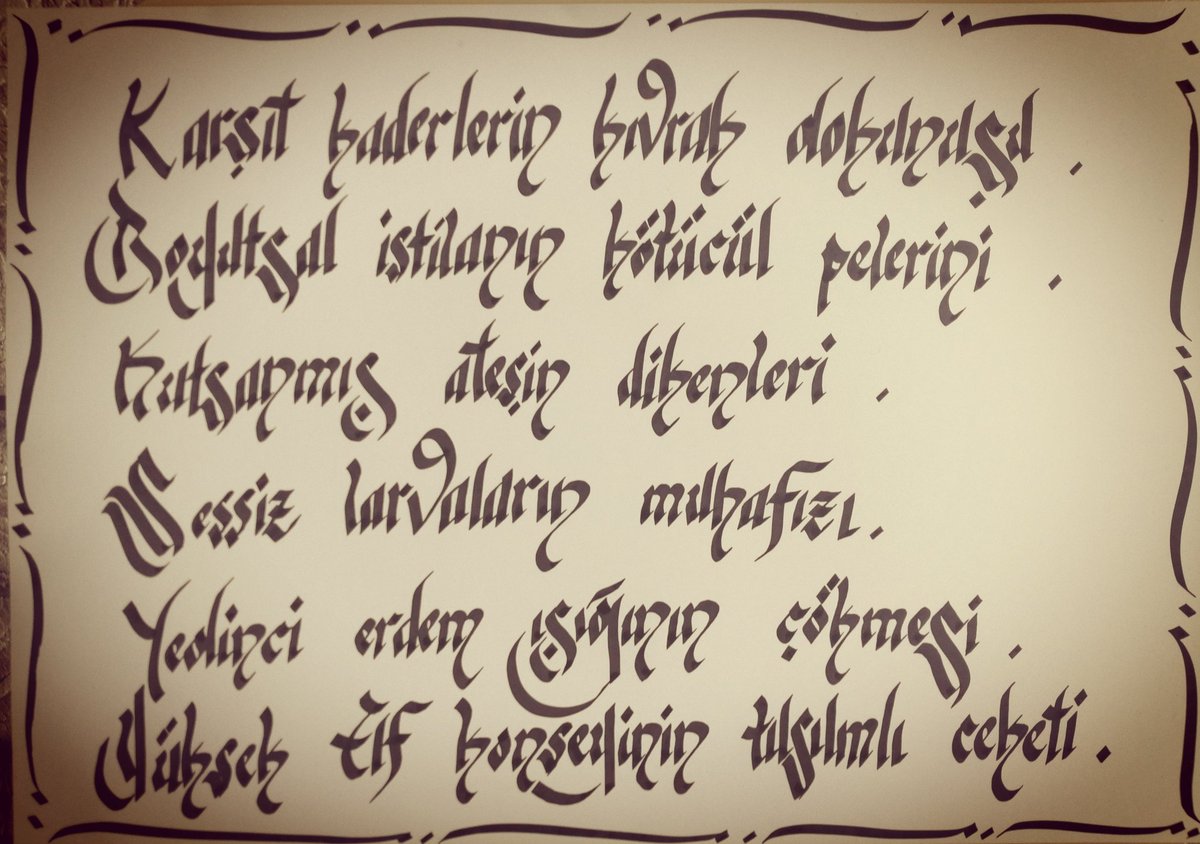 Karşıt kaderlerin kıvrak dokunuşu.
Boyutsal istilanın kötücül pelerini.
Kutsanmış ateşin dikenleri.
Sessiz larvaların muhafızı.
Yedinci erdem ışığının çökmesi.
Yüksek Elf konseyinin tılsımlı ceketi.